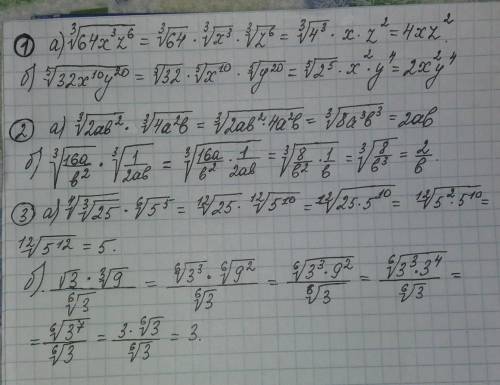 ① а) ∛(64x³z⁶) = ∛64 · ∛x³ · ∛z⁶ = ∛4³ · x · z² = 4xz².
б) ⁵√(32x¹⁰y²⁰) = ⁵√32 · ⁵√x¹⁰ · ⁵√y²⁰ = ⁵√2⁵ · x² · y⁴ = 2x²y⁴
② а) ∛(2ab²) · ∛(4a²b) = ∛(2ab² · 4a²b) = ∛(8a³b³) = 2ab
б) ∛(16a/b²) · ∛(1/2ab) = ∛(16a/b² · 1/2ab) = ∛(8/b² · 1/b) = ∛(8/b³) = 2/b.
③ а) ⁴√(∛25) · ⁶√5⁵ = ¹²√25 · ¹²√5¹⁰ = ¹²√(25 · 5¹⁰) = ¹²√(5² · 5¹⁰) =
¹²√5¹² = 5.
б) (√3 · ∛9)/⁶√3 = (⁶√3³ · ⁶√9²)/⁶√3 = ⁶√(3³ · 9²)/⁶√3 = ⁶√(3³ · 3⁴)/⁶√3 =
= ⁶√3⁷/⁶√3 = (3 · ⁶√3)/⁶√3 = 3.